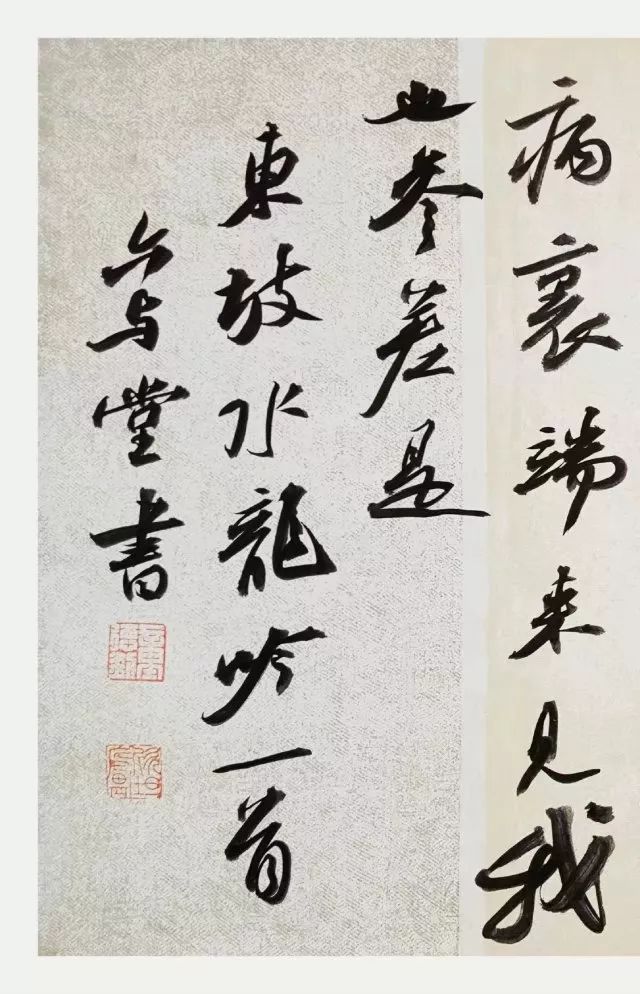 病裏端来見我
也參差是
東坡水龍吟一首
与堂書